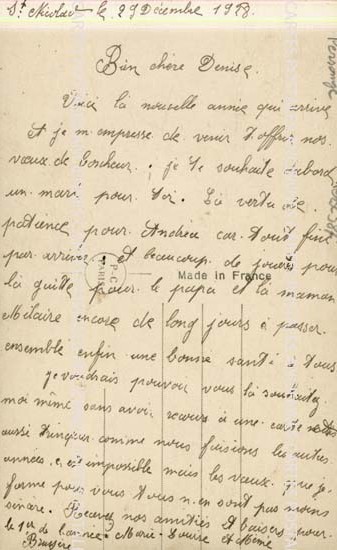 St Nicolas le 29 Décembre 1928.
Bien chère Denise.
Voici la nouvelle année qui arrive
Et je m'empresse de venir t'offrir nos
vœux de bonheur. je te souhaite d'abord
un mari pour toi. La vertu de
patience pour Andréa car tout fini
par arriver. Et beaucoup de jouets pour
la guitte pour le papa et la maman
Made in France
P.C
PARIS
Mitaire encore de long jours à passer
ensemble enfin une bonne santé à tous
je voudrais pouvoir vous la souhaitez
moi même sans avoir recours à une carte
aussi trinquer comme nous faisions les autres
années, c'est impossible mais les vœux que je
forme pour vous tous n'en sont pas moins
sincère. Recevez nos amitiés Et baisers pour
le 1er de l'année. Marie-Louise et Mémé
Brussère